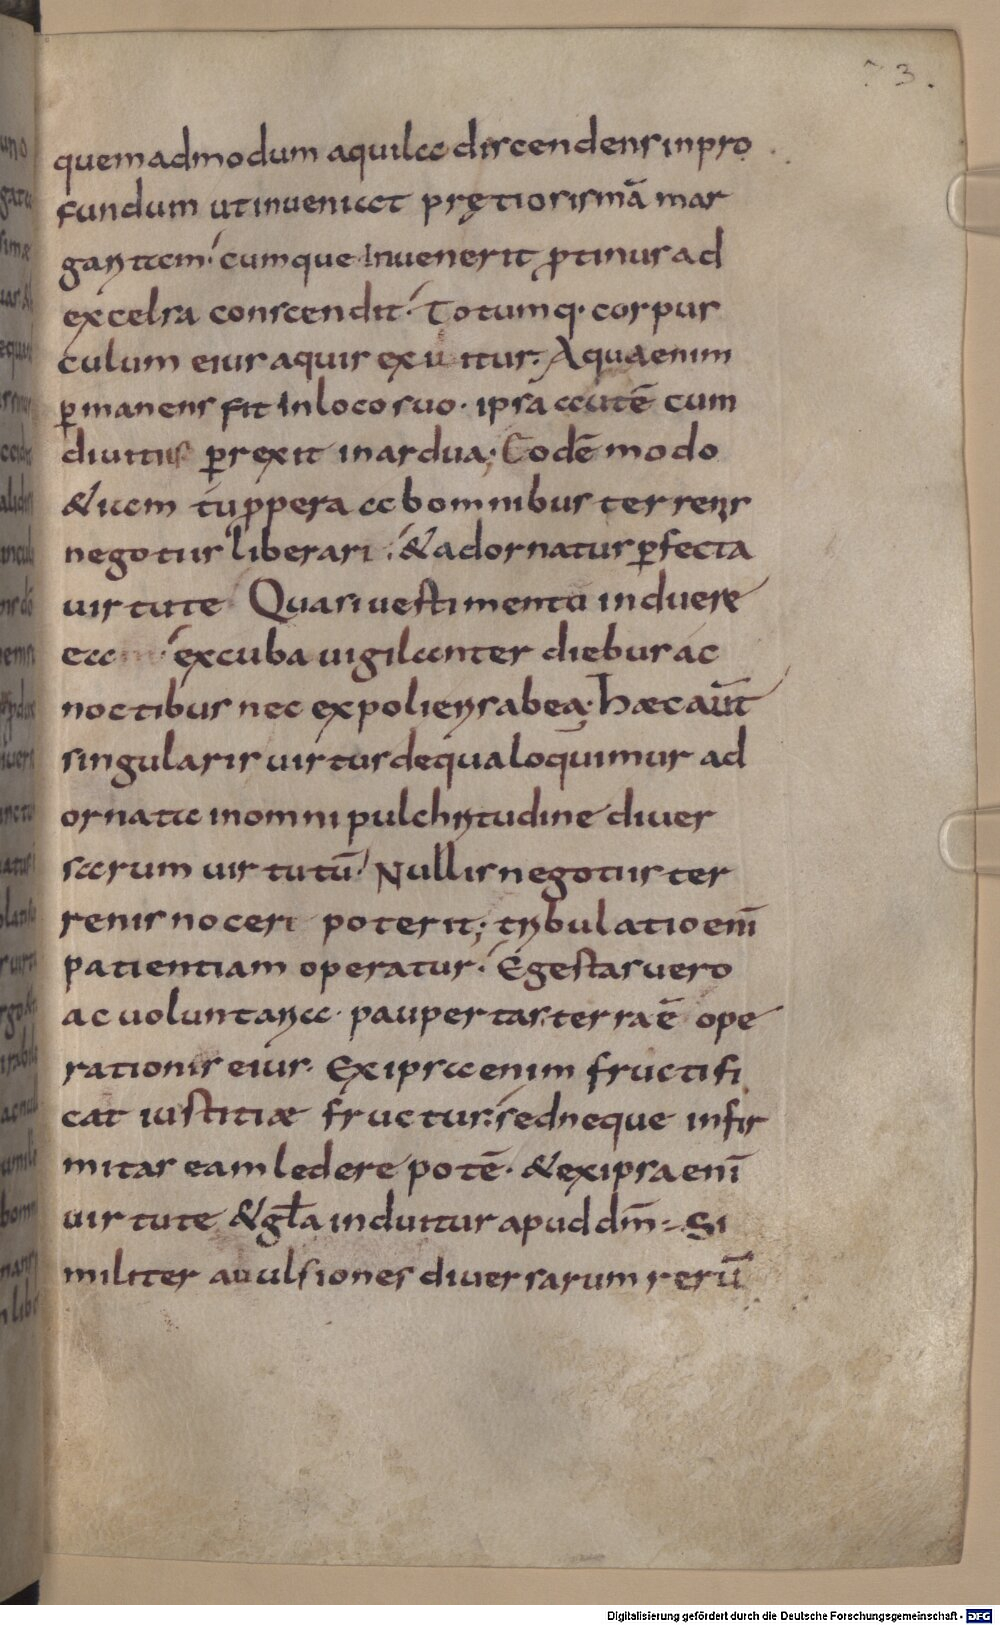 73.
quemadmodum aquila discendens in pro
fundum ut inueniat prętiosismā mar
garitam; cumque Inuenerit ꝓtinus ad
excelsa conscendit; Totumq· corpus
culum eius aquis exuitur. Aqua enim
ꝑmanens fit In loco suo· ipsa autē cum
diuitiis ꝑrexit in ardua; Eodē modo
& uem tu ꝓpera ab omnibus terrenis
negotiis liberari; & adornatus ꝑfecta
uirtute Quasi uestimentū induere
ea excuba uigilanter diebus ac
noctibus nec expolieris ab ea; Hæc aūt
singularis uirtus de qua loquimur ad
ornata in omni pulchritudine diuer
sarum uirtutū; Nullis negotiis ter
renis noceri poterit; tribulatio enī
patientiam operatur; Egestas uero
ac uoluntaria· paupertas terra ē ope
rationis eius· Ex ipsa enim fructifi
cat iustitiæ fructus; sed neque infir
mitas eam ledere potē· & ex ipsa enī
uirtute & gl̄a induitur apud dm̄; Si
militer auulsiones diuersarum rerū
Digitalisierung gefördert durch die Deutsche Forschungsgemeinschaft - DFG